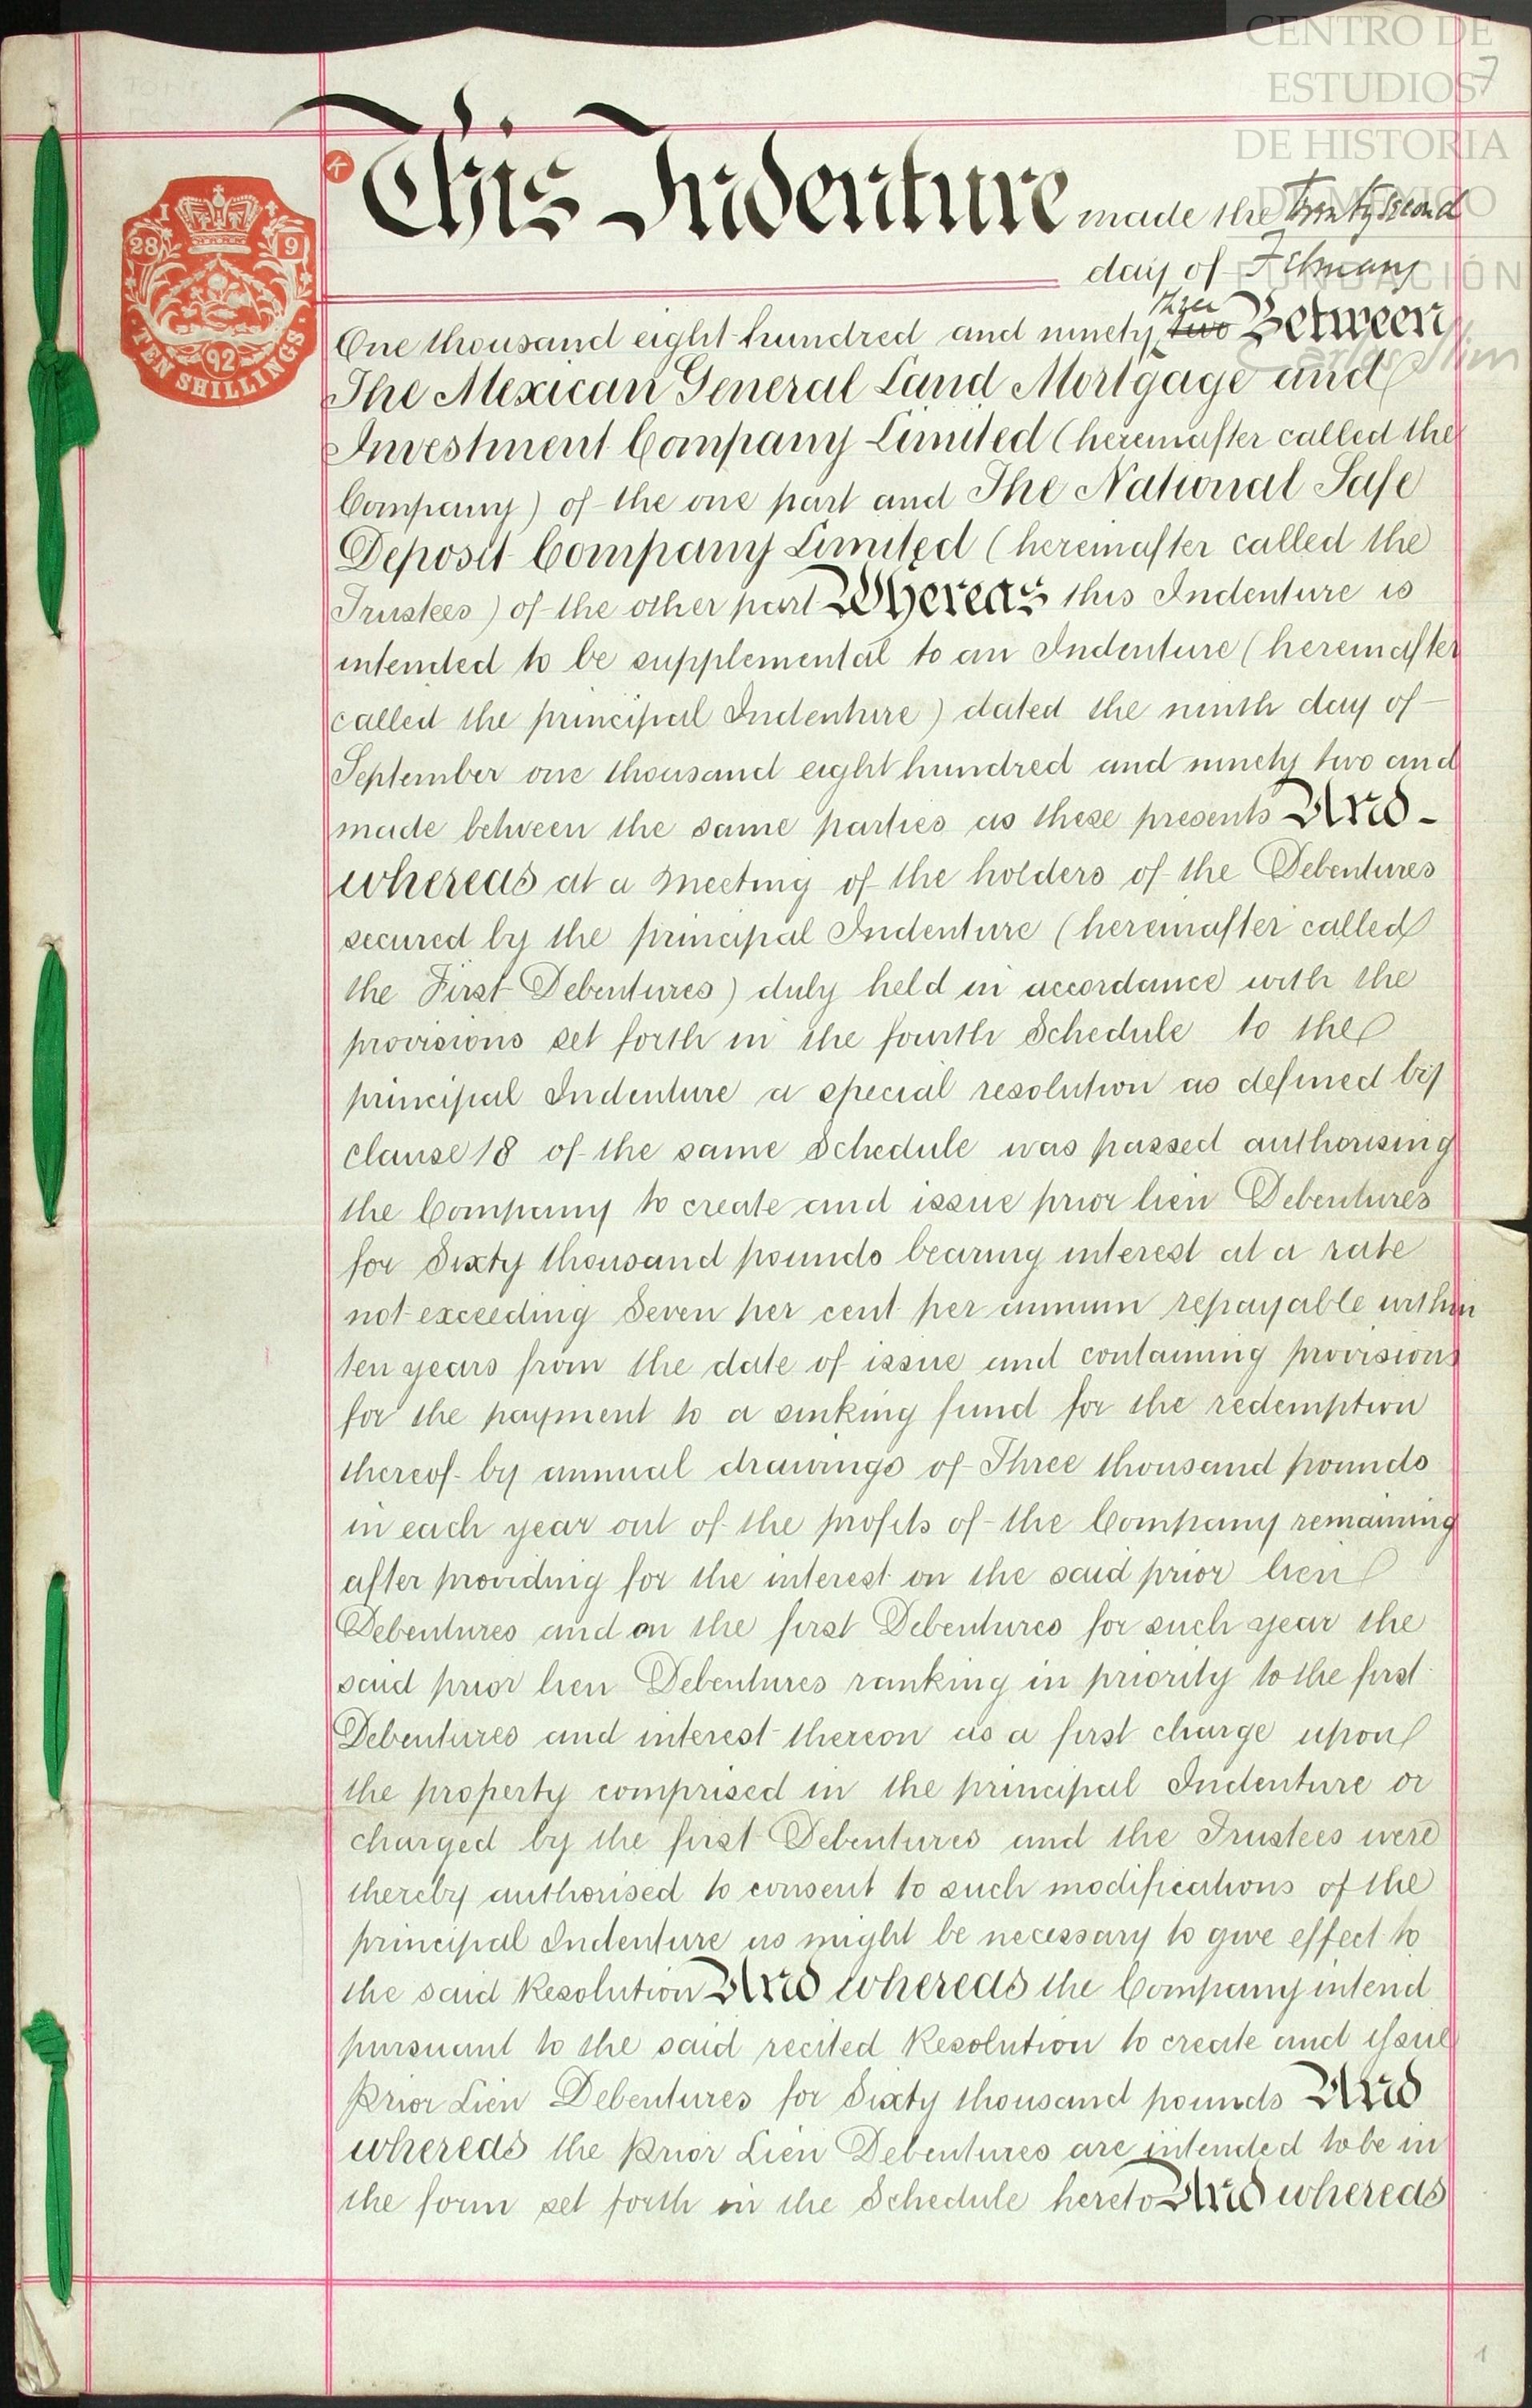 CENTRO DE
ESTUDIOS
DE HISTORIA
DE MÉXICO
FUNDACIÓN
Carlos Slim
7
K
1 28 9 92
TEN SHILLINGS
This Indenture made the twenty second
day of February
One thousand eight hundred and ninety two three Between
The Mexican General Land Mortgage and
Investment Company Limited (hereinafter called the
Company) of the one part and The National Safe
Deposit Company Limited (hereinafter called the
Trustees) of the other part Whereas this Indenture is
intended to be supplemental to an Indenture (hereinafter
called the principal Indenture) dated the ninth day of
September one thousand eight hundred and ninety two and
made between the same parties as these presents And
whereas at a meeting of the holders of the Debentures
secured by the principal Indenture (hereinafter called
the First Debentures) duly held in accordance with the
provisions set forth in the fourth Schedule to the
principal Indenture a special resolution as defined by
clause 18 of the same Schedule was passed authorising
the Company to create and issue prior lien Debentures
for Sixty thousand pounds bearing interest at a rate
not exceeding Seven per cent per annum repayable within
ten years from the date of issue and containing provisions
for the payment to a sinking fund for the redemption
thereof by annual drawings of Three thousand pounds
in each year out of the profits of the Company remaining
after providing for the interest on the said prior lien
Debentures and on the first Debentures for such year the
said prior lien Debentures ranking in priority to the first
Debentures and interest thereon as a first charge upon
the property comprised in the principal Indenture or
charged by the first Debentures and the Trustees were
thereby authorised to consent to such modifications of the
principal Indenture as might be necessary to give effect to
the said Resolution And whereas the Company intend
pursuant to the said recited Resolution to create and issue
Prior Lien Debentures for Sixty thousand pounds And
whereas the Prior Lien Debentures are intended to be in
the form set forth in the Schedule hereto And whereas
1